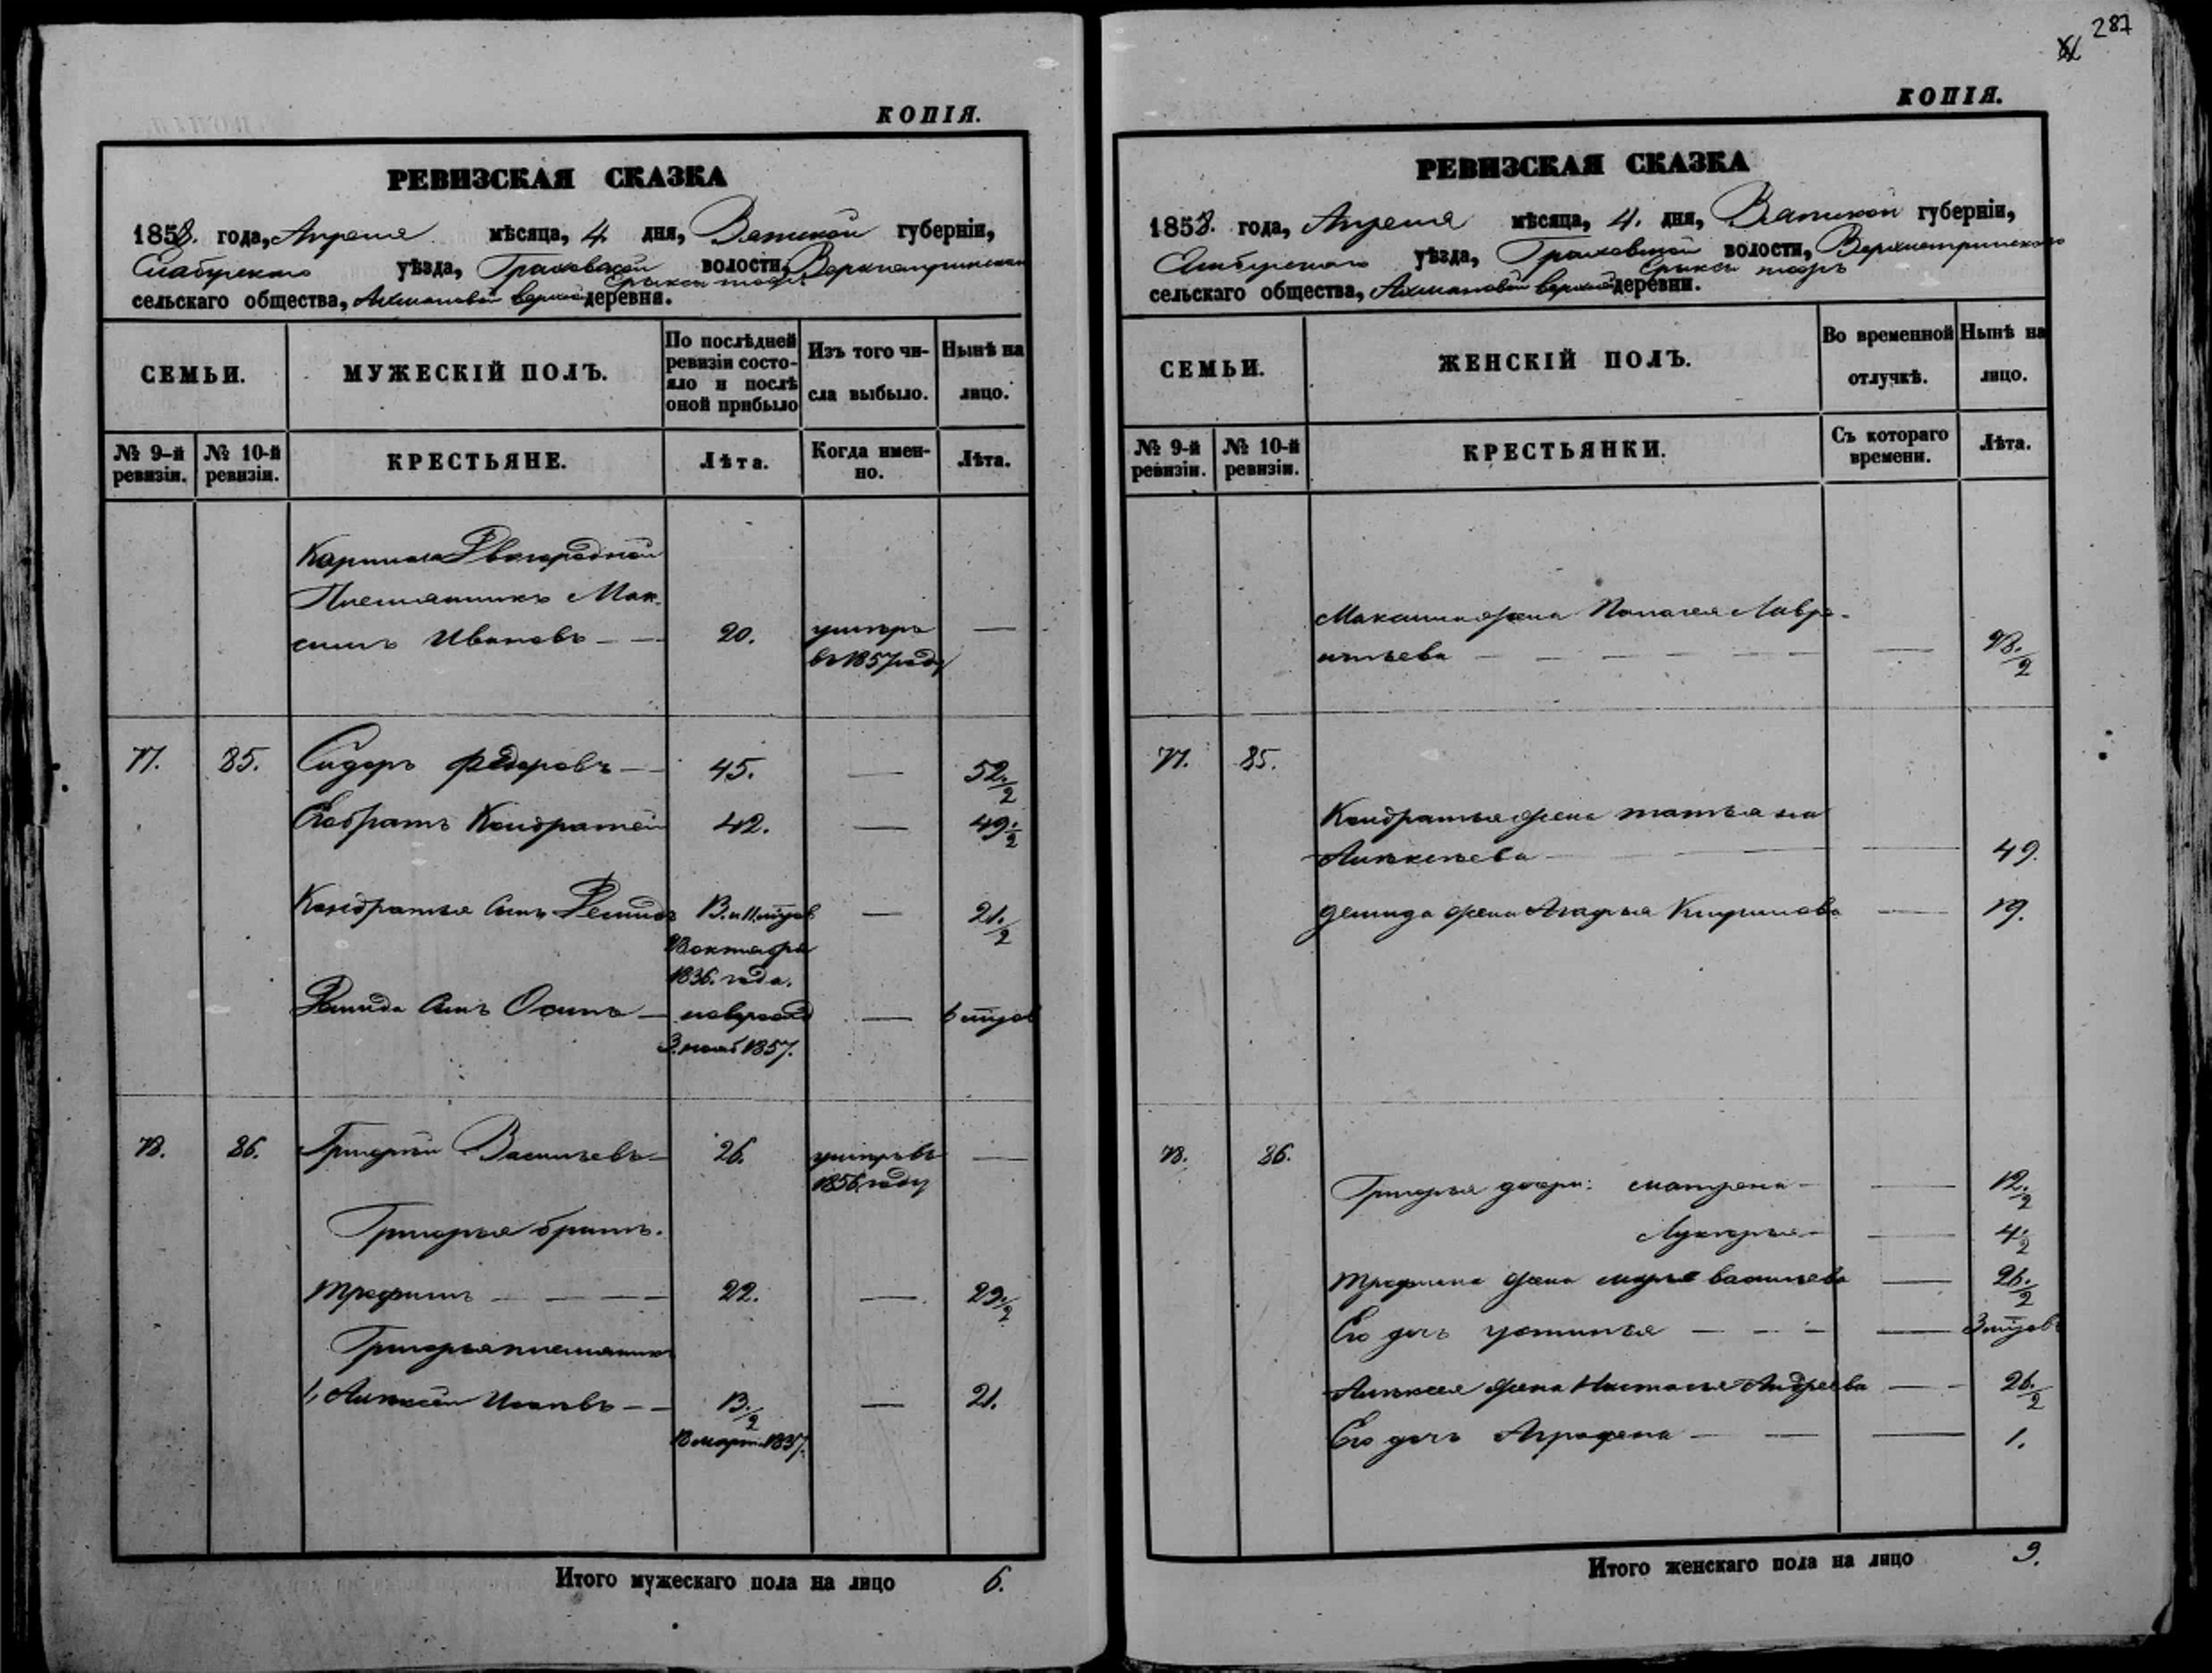 287
КОПІЯ.
РЕВИЗСКАЯ СКАЗКА
1858. года, Апреля мѣсяца, 4 дня, Вятской губерніи,
Елабугскаго уѣзда, Граховской волости,
сельскаго общества, деревня.
СЕМЬИ.
МУЖЕСКІЙ ПОЛЪ.
По послѣдней ревизіи состояло и послѣ оной прибыло
Изъ того числа выбыло.
Нынѣ на лицо.
№ 9-й ревизіи.
№ 10-й ревизіи.
КРЕСТЬЯНЕ.
Лѣта.
Когда именно.
Лѣта.
Двоюродной
Племянникъ Мак-
симъ Ивановъ — — 20. умеръ —
въ 1857 году
77. 85. Сидоръ Федоровъ — — 45. — 52 ½
Его братъ Кондратей 42. — 49 ½
Кондратья сынъ Демидъ — 21 ½
октября
1836. года.
Демида сынъ Осипъ — новорожд —
1857.
78. 86. Григорій Васильевъ — 26. умеръ въ —
1856 году
Григорья братъ.
Трофимъ — — — — 22. — 29 ½
Григорья племянник
1, Алексей — — — 21.
1837.
Итого мужескаго пола на лицо 6.
КОПІЯ.
РЕВИЗСКАЯ СКАЗКА
1858. года, Апреля мѣсяца, 4. дня, Вятской губерніи,
Елабугскаго уѣзда, Граховской волости,
сельскаго общества, деревни.
СЕМЬИ.
ЖЕНСКІЙ ПОЛЪ.
Во временной отлучкѣ.
Нынѣ на лицо.
№ 9-й ревизіи.
№ 10-й ревизіи.
КРЕСТЬЯНКИ.
Съ котораго времени.
Лѣта.
Максима жена Лавре-
нтьева — — — — — —
77. 85.
Кондратья жена Татьяна
Алексеева — 49.
Демида жена Агафья Кирилова — 19.
78. 86.
Григорья дочери: Матрена — — 12 ½
Лукерья — — 4 ½
Трофима жена Марья Васильева — 26 ½
Его дочь Устинья — — — —
Алексея жена Настасья Андреева — 26 ½
Его дочь Аграфена — — — 1.
Итого женскаго пола на лицо 9.